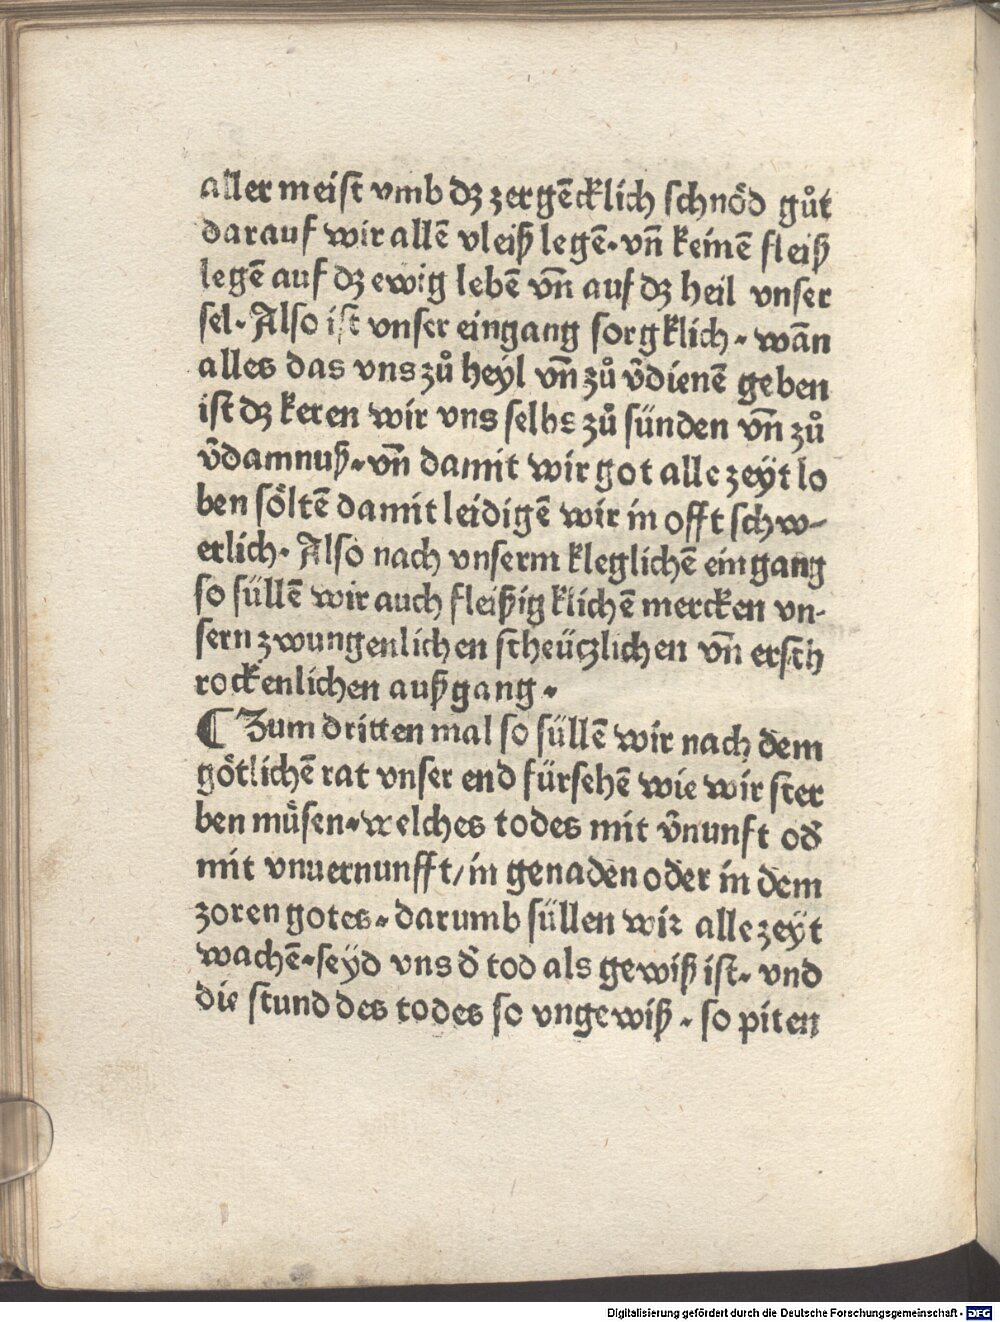 aller meist vmb dz zergēcklich schnöd gůt
darauf wir allē vleiß legē. vn̄ keinē fleiß
legē auf dz ewig lebē vn̄ auf dz heil vnser
sel. Also ist vnser eingang sorgklich. wān
alles das vns zů heyl vn̄ zů v̄dienē geben
ist dz keren wir vns selbs zů sünden vn̄ zů
v̄damnuß. vn̄ damit wir got alle zeÿt lo
ben söltē damit leidigē wir in offt schw-
erlich. Also nach vnserm kleglichē eingang
so süllē wir auch fleißigklichē mercken vn-
sern zwungenlichen scheüczlichen vn̄ ersch
rockenlichen außgang.
¶ Zum dritten mal so süllē wir nach dem
götlichē rat vnser end fürsehē wie wir ster
ben müsen. welches todes mit v̄nunft od̄
mit vnuernunfft/ in genaden oder in dem
zoren gotes. darumb süllen wir alle zeÿt
wachē. seÿd vns d̄ tod als gewiß ist. vnd
die stund des todes so vngewiß. so piten
Digitalisierung gefördert durch die Deutsche Forschungsgemeinschaft - DFG